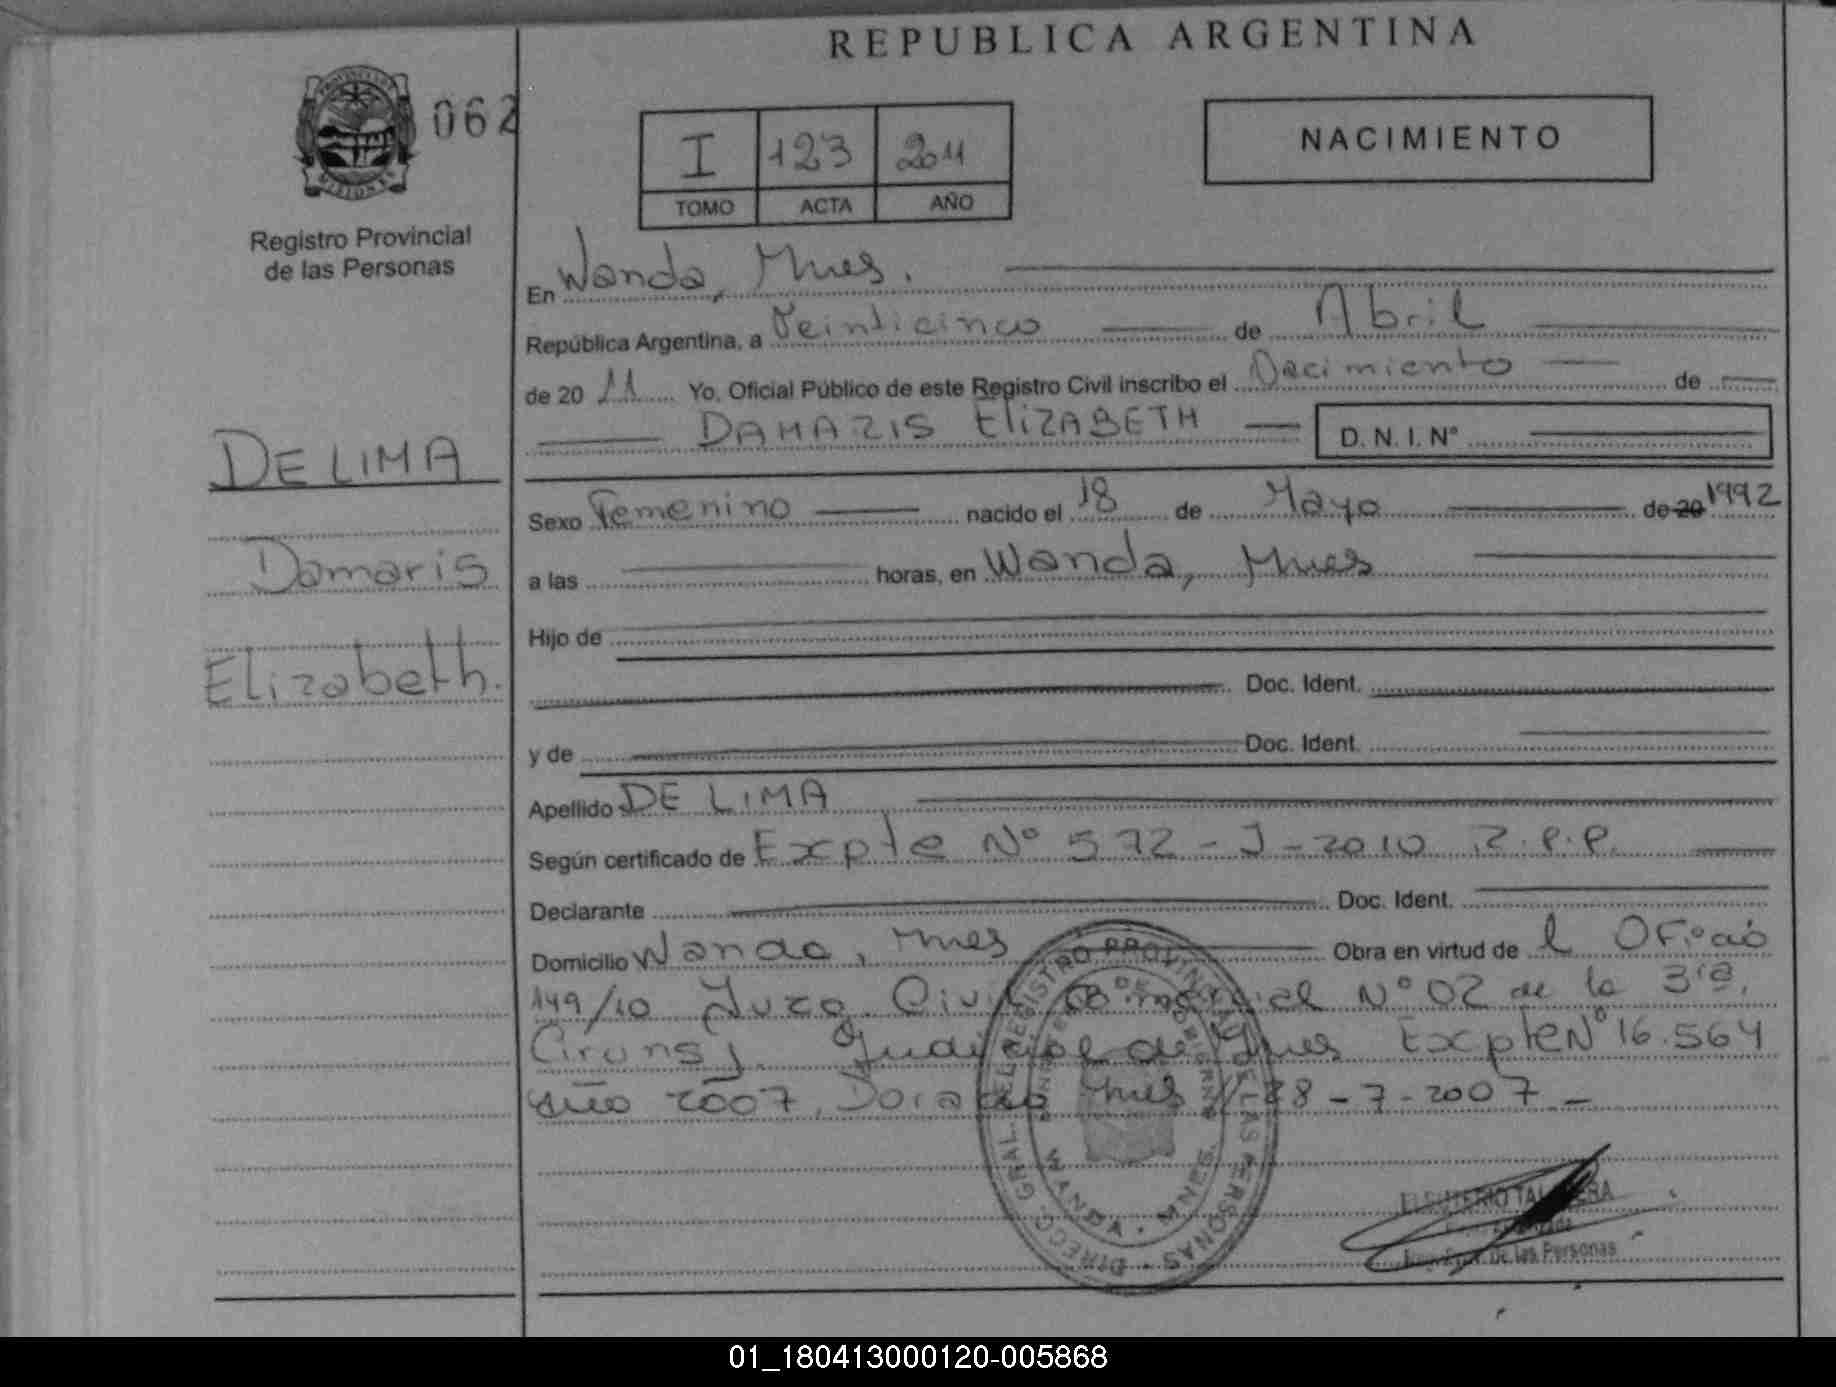 REPUBLICA ARGENTINA
PROVINCIA DE MISIONES
062
Registro Provincial
de las Personas
I 123 2011
TOMO ACTA AÑO
NACIMIENTO
En Wanda, Mnes.
República Argentina, a Veinticinco de Abril
de 20 11 Yo, Oficial Público de este Registro Civil inscribo el Nacimiento de
DAMARIS ELIZABETH D. N. I. Nº
DE LIMA
Damaris
Elizabeth.
Sexo Femenino nacido el 18 de Mayo de 20 1992
a las horas, en Wanda, Mnes
Hijo de
Doc. Ident.
y de Doc. Ident.
Apellido DE LIMA
Según certificado de Expte Nº 572 - J - 2010 R.P.P.
Declarante Doc. Ident.
Domicilio Wanda, Mnes Obra en virtud de l Oficio
149/10 Juzg. Civil Comercial Nº 02 de la 3ia.
Circunsj. Judicial de Mnes Expte Nº 16.564
año 2007, Mnes 28-7-2007 -
DIRECC. GRAL. DEL REGISTRO PROVINCIAL DE LAS PERSONAS
WANDA - MNES.
De las Personas
01_180413000120-005868